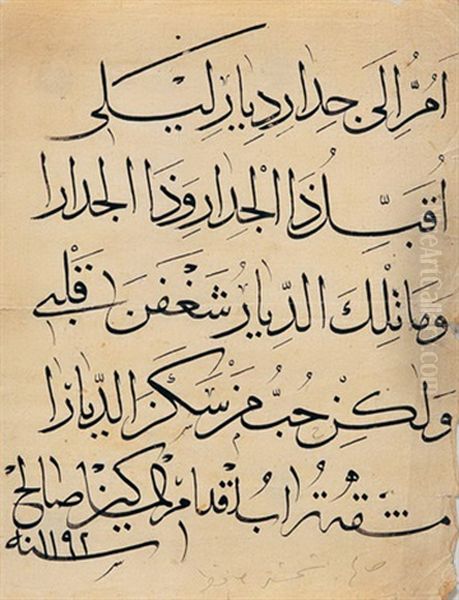 اَمُرُّ اِلَى جِدارِ دِيارِ لَيْلَى
اُقَبِّلُ ذَا الْجِدارِ وَذَا الْجِدارا
وَمَا تِلْكَ الدِّيارُ شَغَفْنَ قَلْبِي
وَلٰكِنْ حُبُّ مَنْ سَكَنَ الدِّيارَا
مشقه تراب اقدام صالح
سنه ١١٩٢